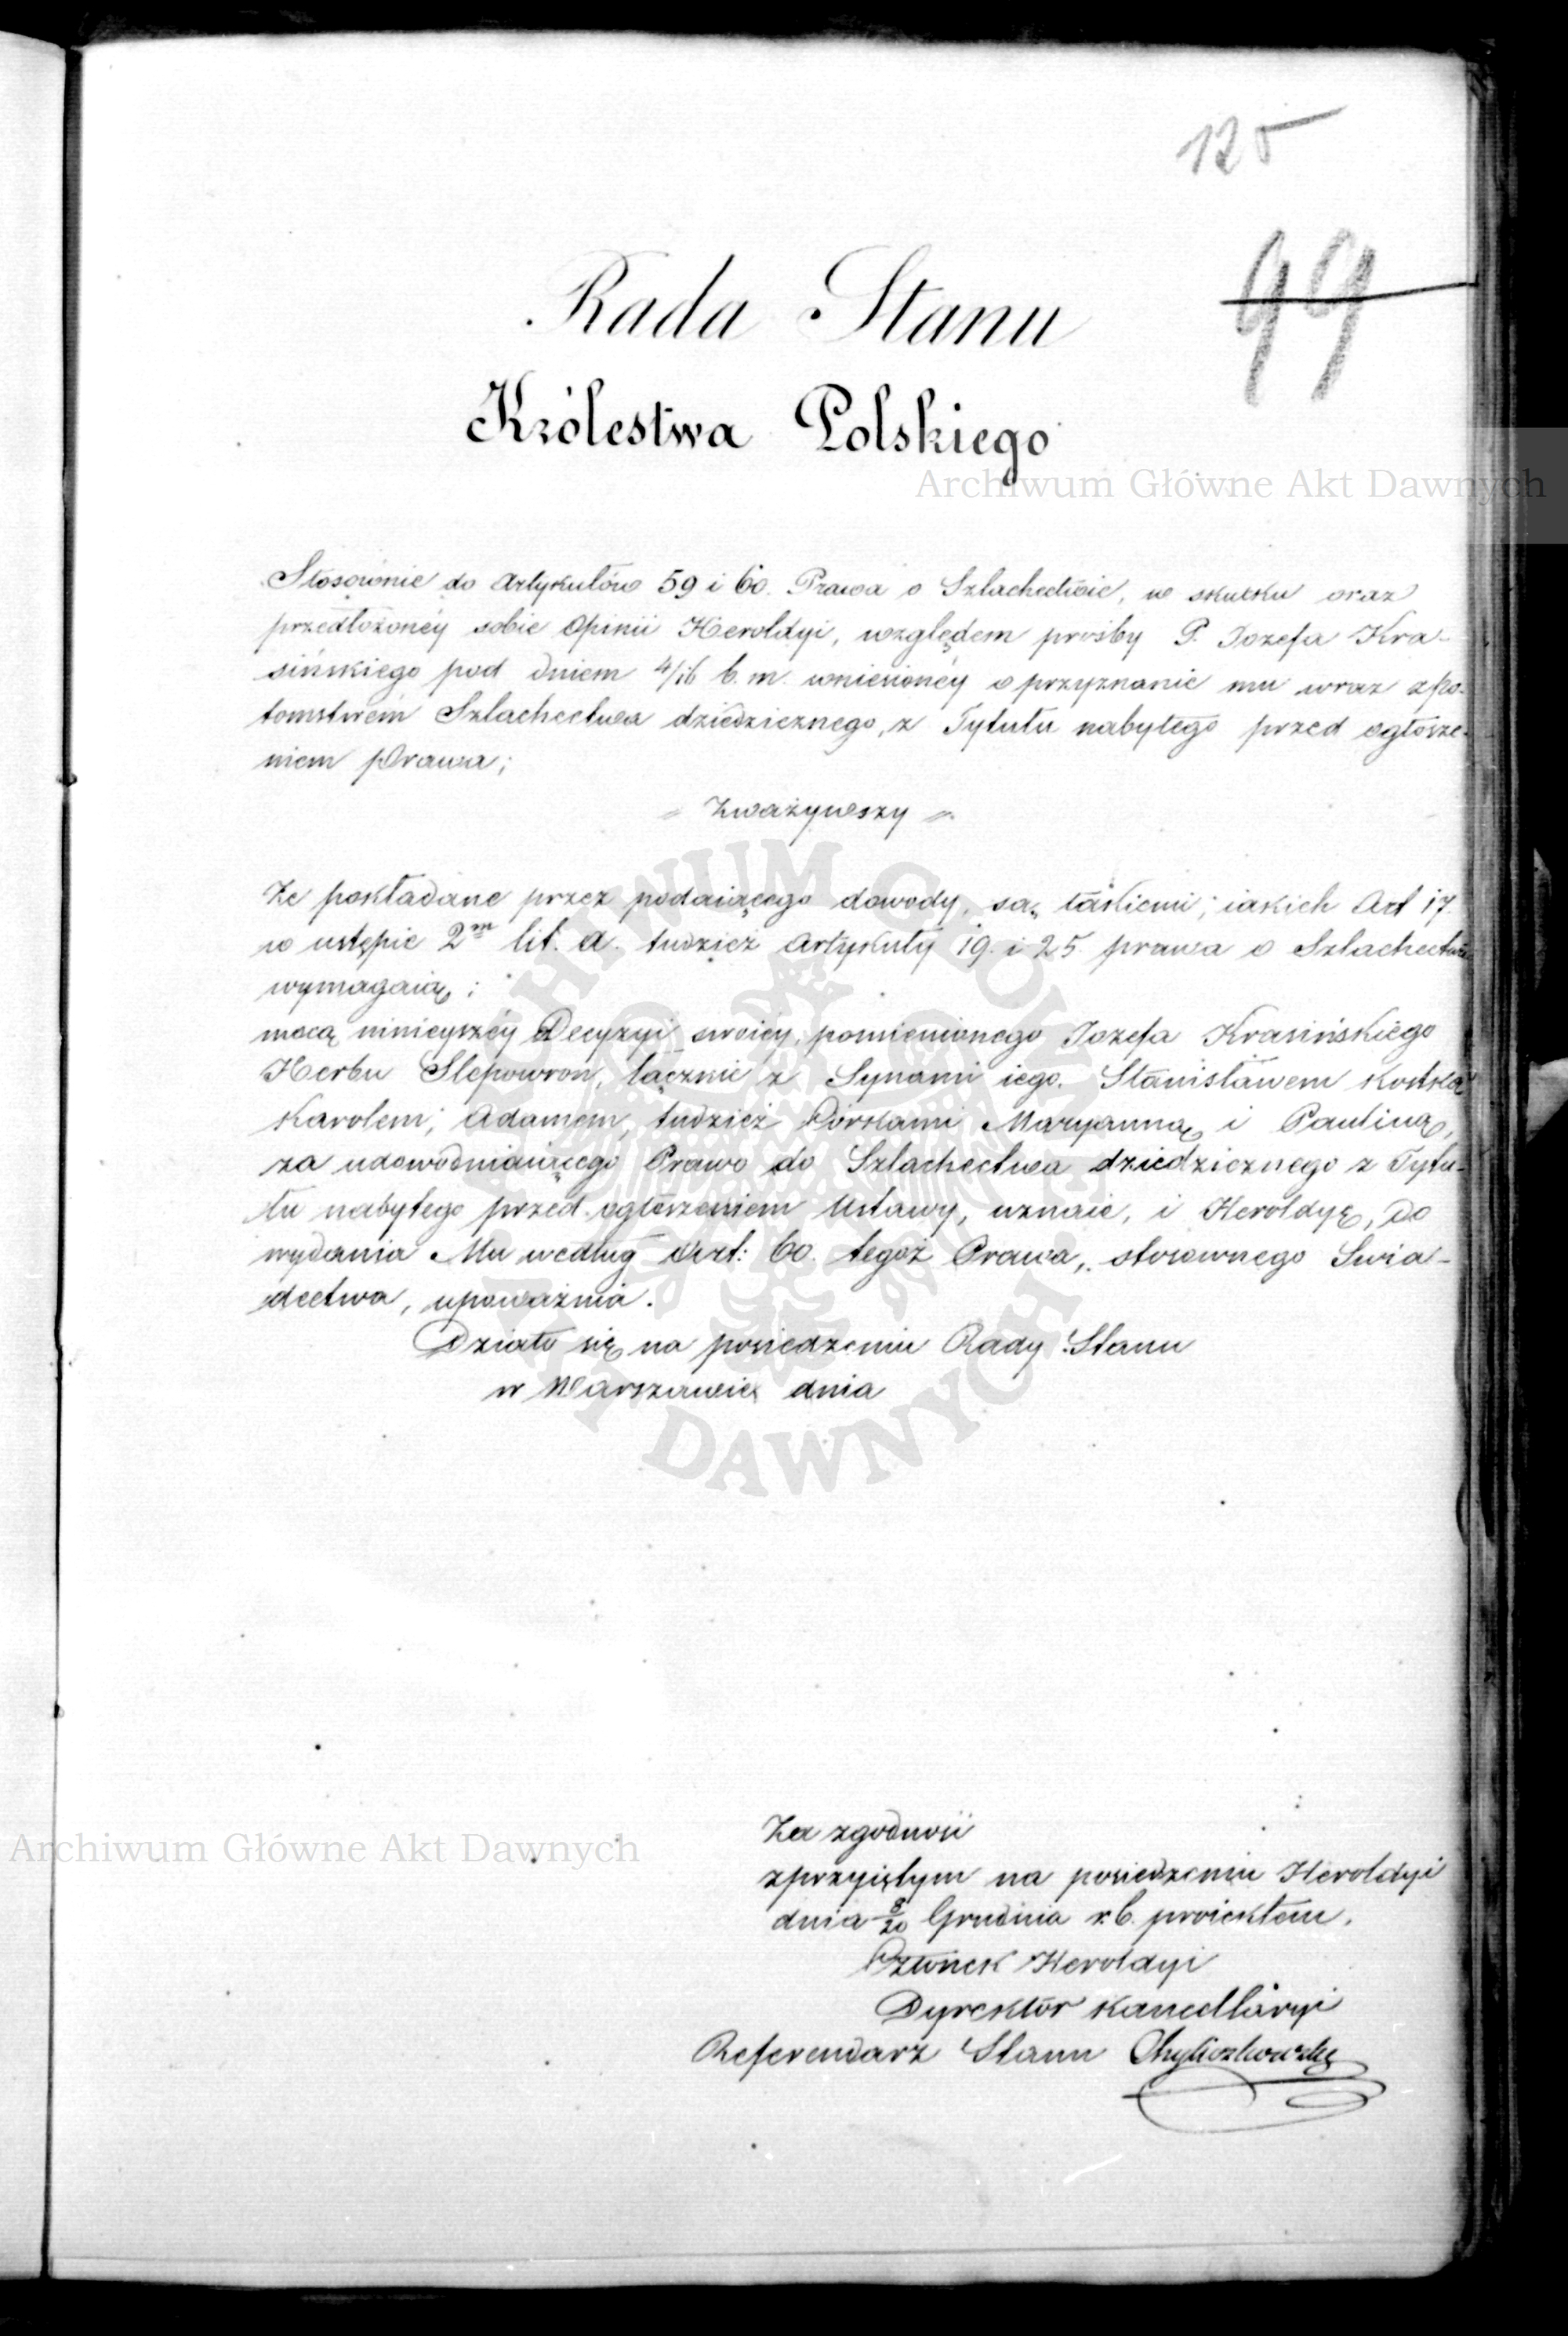 125
99
Rada Stanu
Królestwa Polskiego
Archiwum Główne Akt Dawnych
Stosownie do Artykułów 59 i 60. Prawa o Szlachectwie, w skutku oraz
przedłożonéy sobie Opinii Heroldyi, względem prośby P. Jozefa Kra-
sińskiego pod dniem 4/16 b. m. wniesionéy o przyznanie mu wraz z po-
tomstwem Szlachectwa dziedzicznego, z Tytułu nabytego przed ogłosze-
niem Prawa;
Zważywszy
Ze pokładane przez podaiącego dowody, są takiemi; iakich Art 17.
w ustępie 2m lit. a. tudzież Artykuły 19. i 25. prawa o Szlachectwie
wymagaią;
mocą ninieyszéy Decyzyi swoiéy, pomienionego Jozefa Krasińskiego
Herbu Slepowron, łącznie z Synami iego. Stanisławem Kostką
Karolem; Adamem, tudzież Córkami Maryanną i Pauliną,
za udowodniaiącego Prawo do Szlachectwa dziedzicznego z Tytu-
łu nabytego przed ogłoszeniem Ustawy, uznaie, i Heroldyę, do
wydania Mu według Art: 60. tegoż Prawa, stosownego Swia-
dectwa, upoważnia.
Działo się na posiedzeniu Rady Stanu
w Warszawie dnia
ARCHIWUM GŁÓWNE AKT DAWNYCH
Archiwum Główne Akt Dawnych
Za zgodność
z przyiętym na posiedzeniu Heroldyi
dnia 8/20 Grudnia r. b. proiektem.
Członek Heroldyi
Dyrektor Kancellaryi
Referendarz Stanu Chyliczkowski